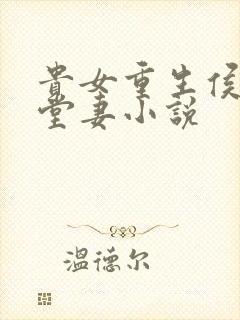 貴女重生侯
堂妻小説
温德尔